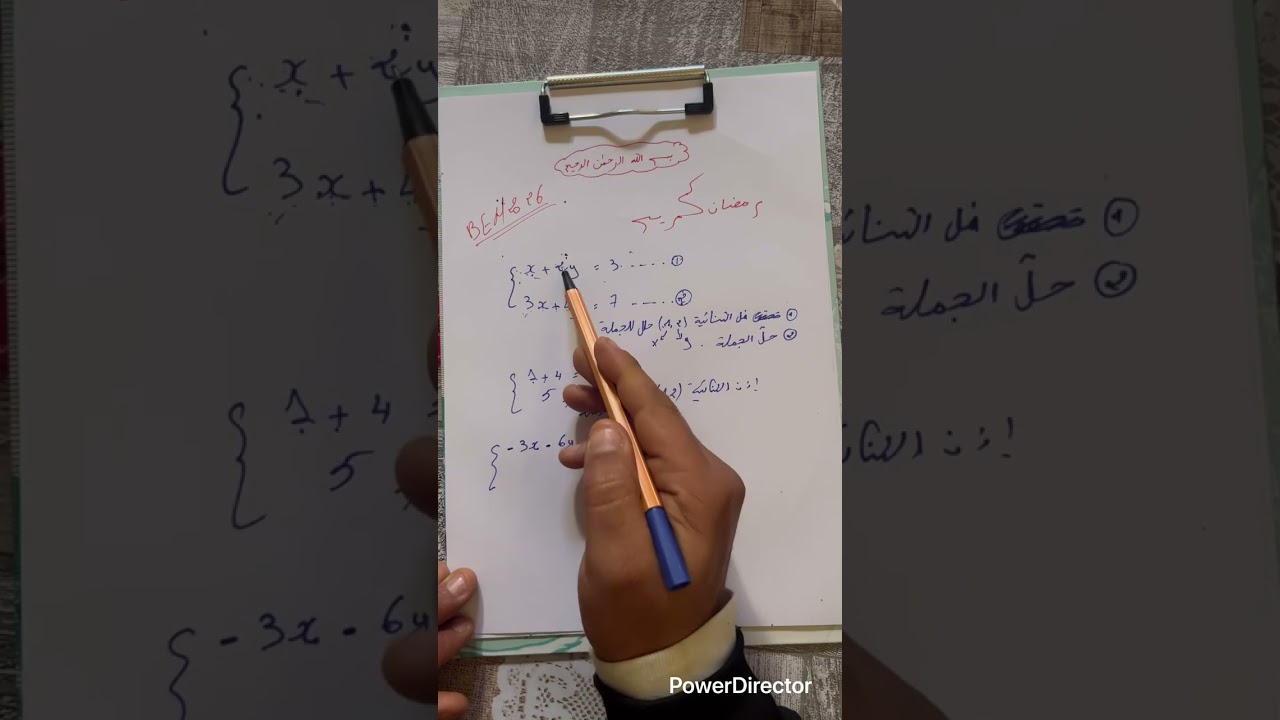 بسم الله الرحمن الرحيم
BEM 2026
رمضان كريم
x + 2y = 3 ...... ①
3x + 4 = 7 ...... ②
① تحقق هل الثنائية (1,2) حل للجملة
② حلّ الجملة .
1 + 4 =
5
إذن الثنائية
-3x - 6y
PowerDirector